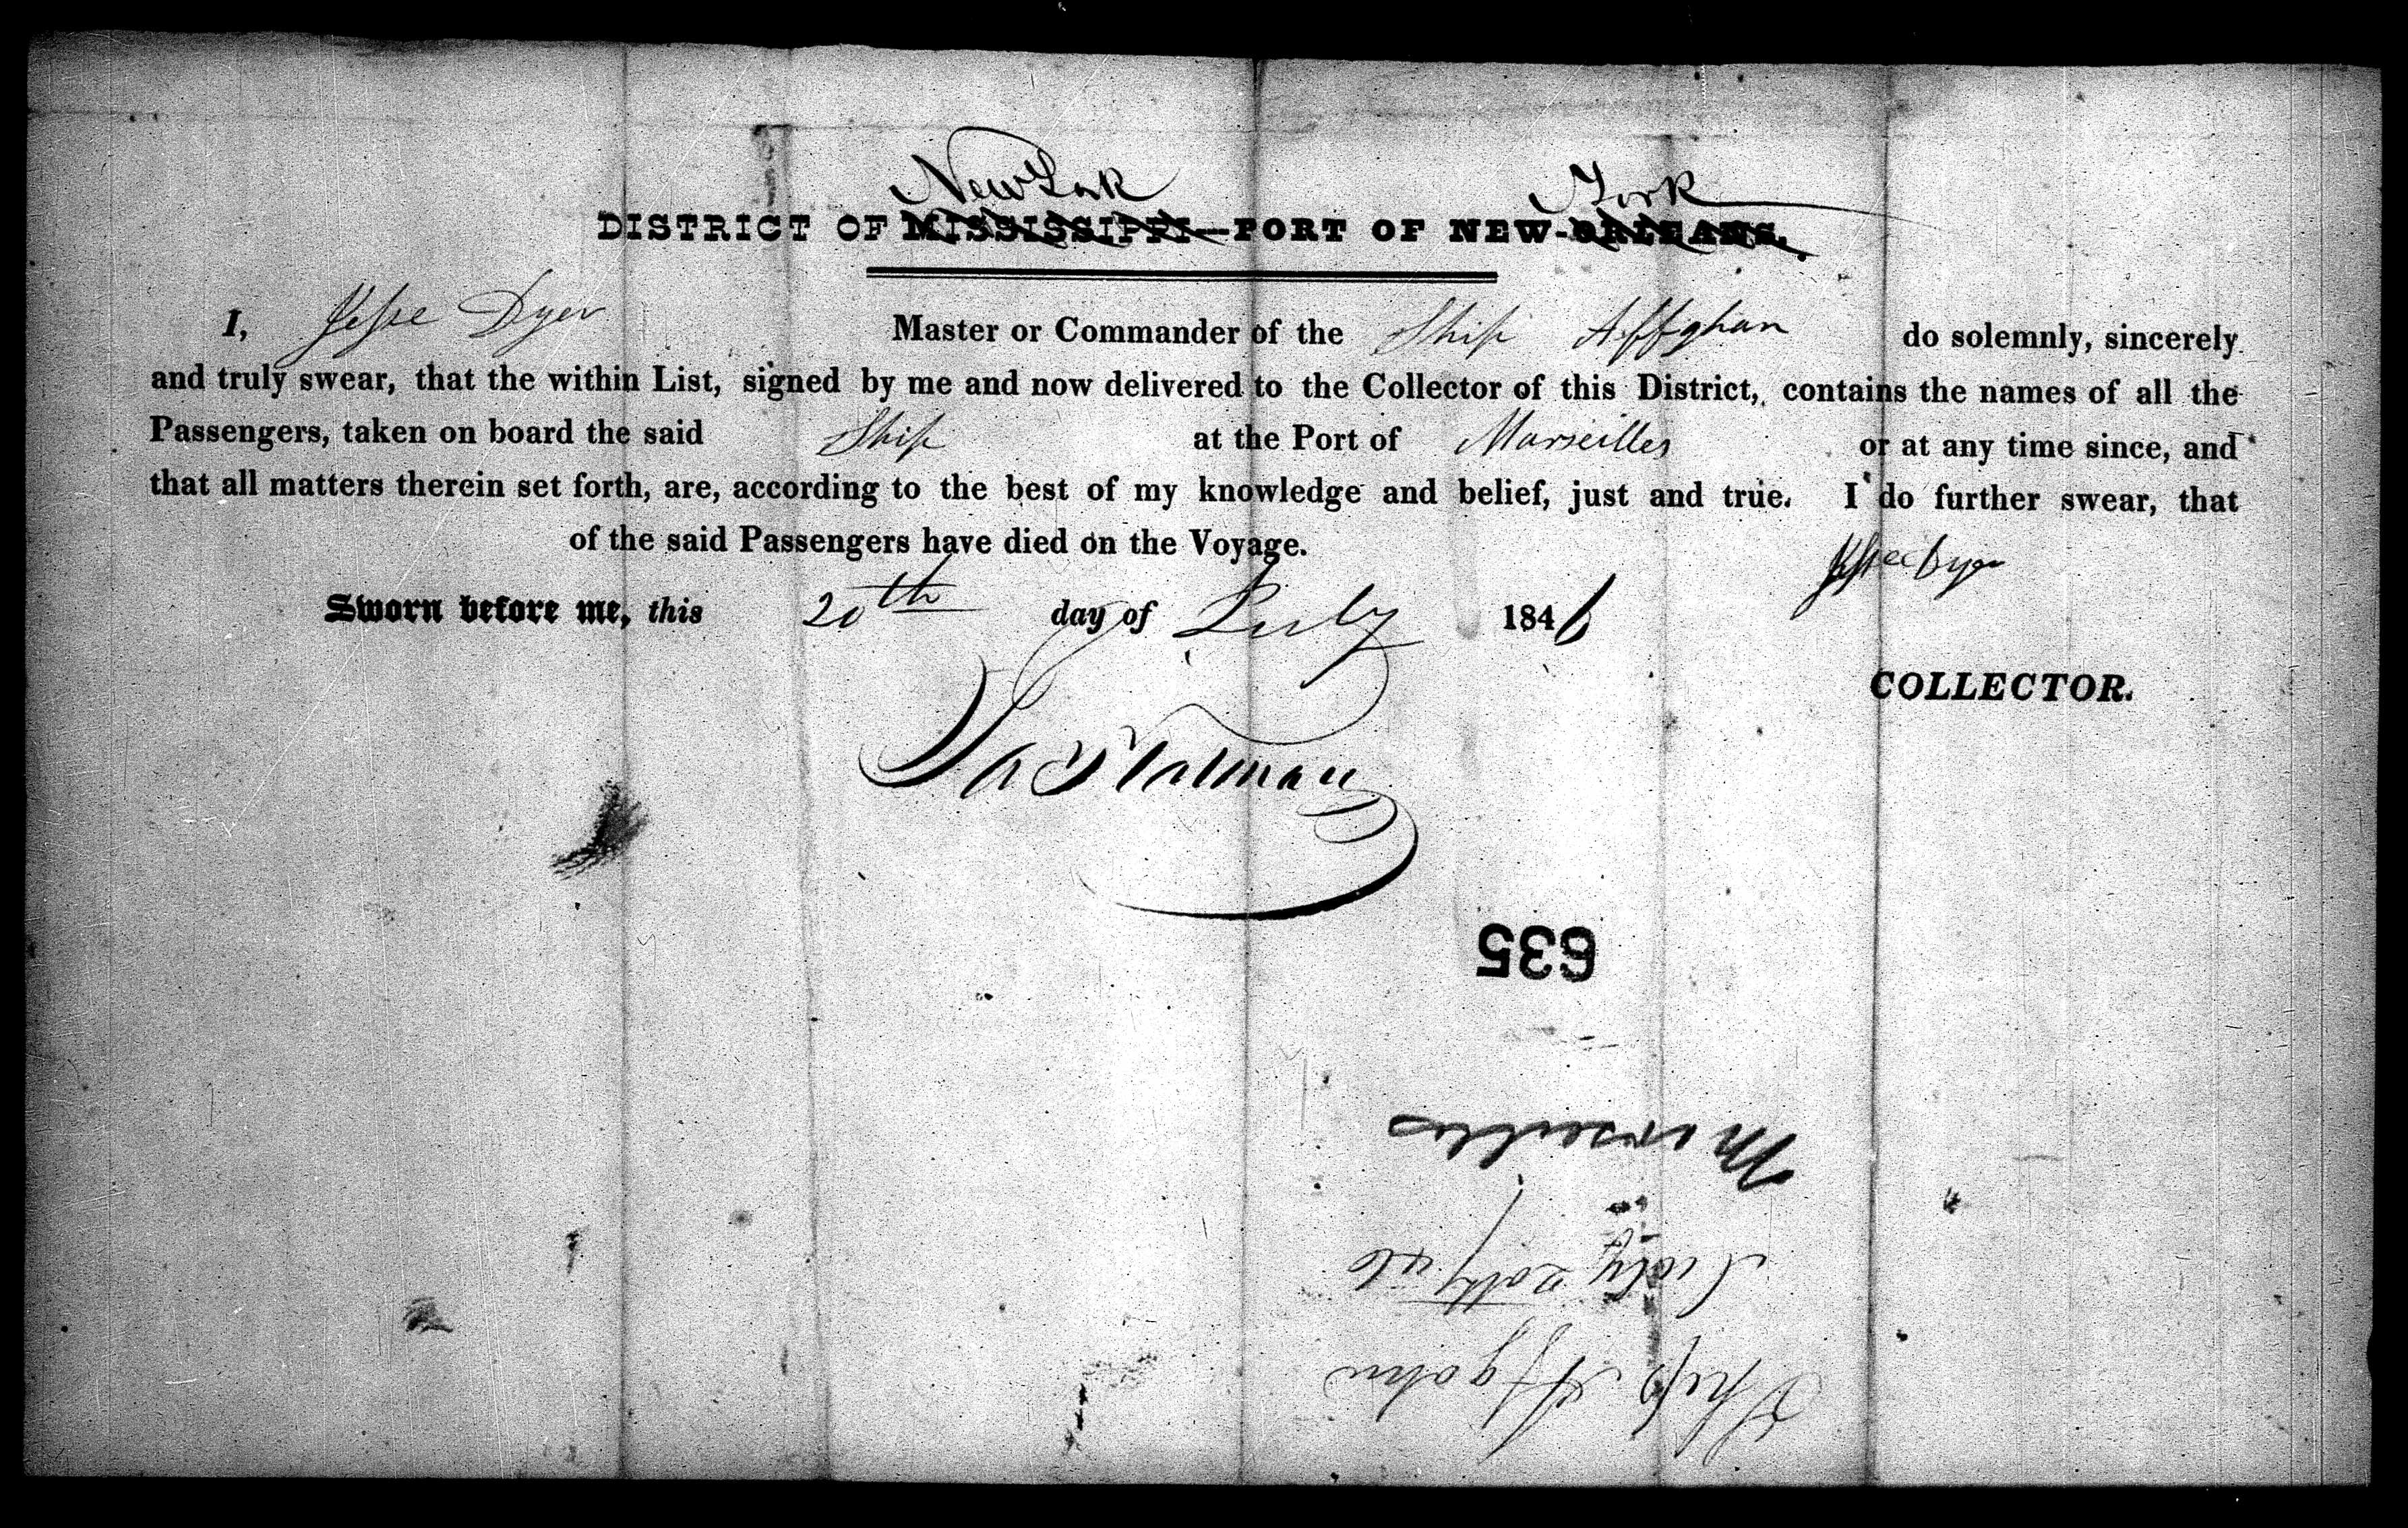 New York York
DISTRICT OF MISSISSIPPI—PORT OF NEW-ORLEANS.
I, Jesse Dyer Master or Commander of the Ship Affghan do solemnly, sincerely
and truly swear, that the within List, signed by me and now delivered to the Collector of this District, contains the names of all the
Passengers, taken on board the said Ship at the Port of Marseilles or at any time since, and
that all matters therein set forth, are, according to the best of my knowledge and belief, just and true. I do further swear, that
of the said Passengers have died on the Voyage.
Jesse Dyer
Sworn before me, this 20th day of July 1846
COLLECTOR.
635
Ship Afgahn
July 20th/46
Marseilles